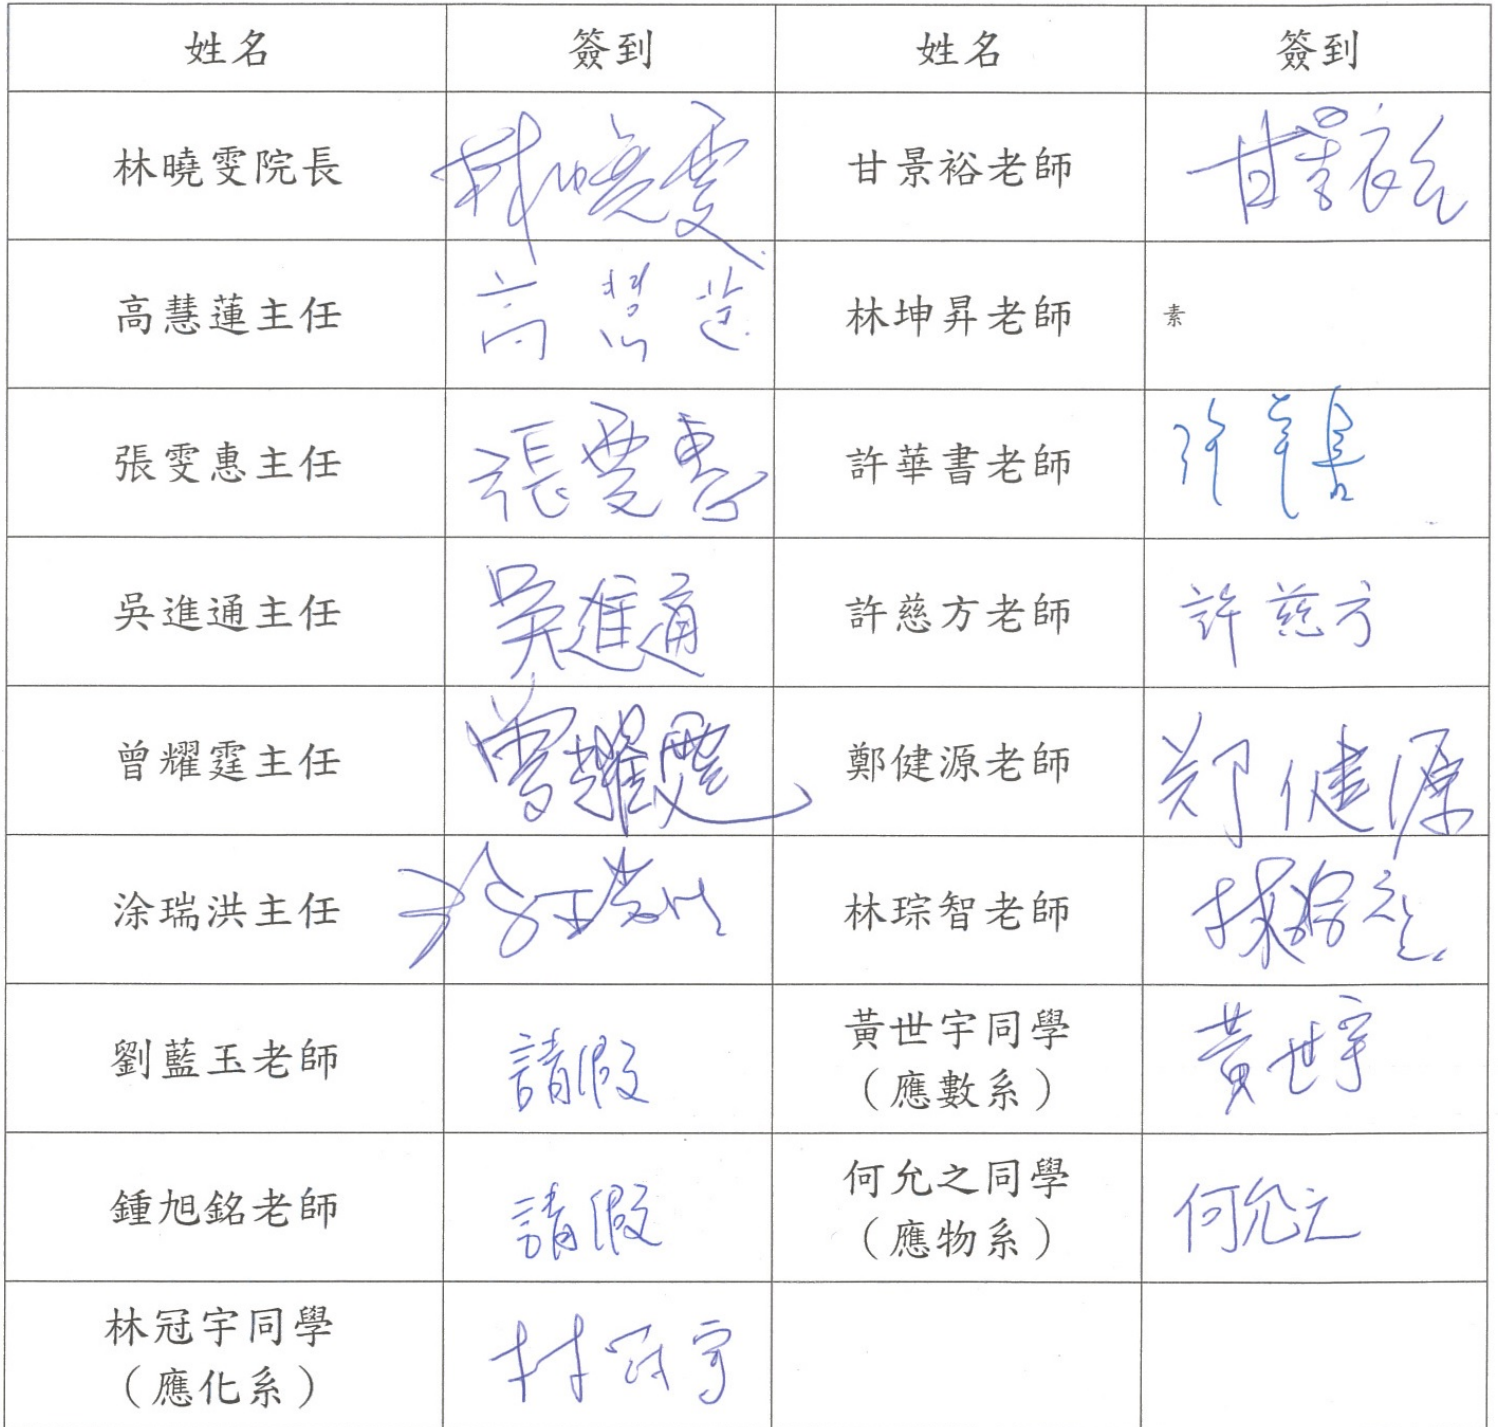 姓名 簽到 姓名 簽到
林曉雯院長 林曉雯 甘景裕老師 甘景裕
高慧蓮主任 高慧蓮 林坤昇老師 素
張雯惠主任 張雯惠 許華書老師 許華書
吳進通主任 吳進通 許慈方老師 許慈方
曾耀霆主任 曾耀霆 鄭健源老師 鄭健源
涂瑞洪主任 涂瑞洪 林琮智老師 林琮智
劉藍玉老師 請假 黃世宇同學 黃世宇
（應數系）
鍾旭銘老師 請假 何允之同學 何允之
（應物系）
林冠宇同學 林冠宇
（應化系）